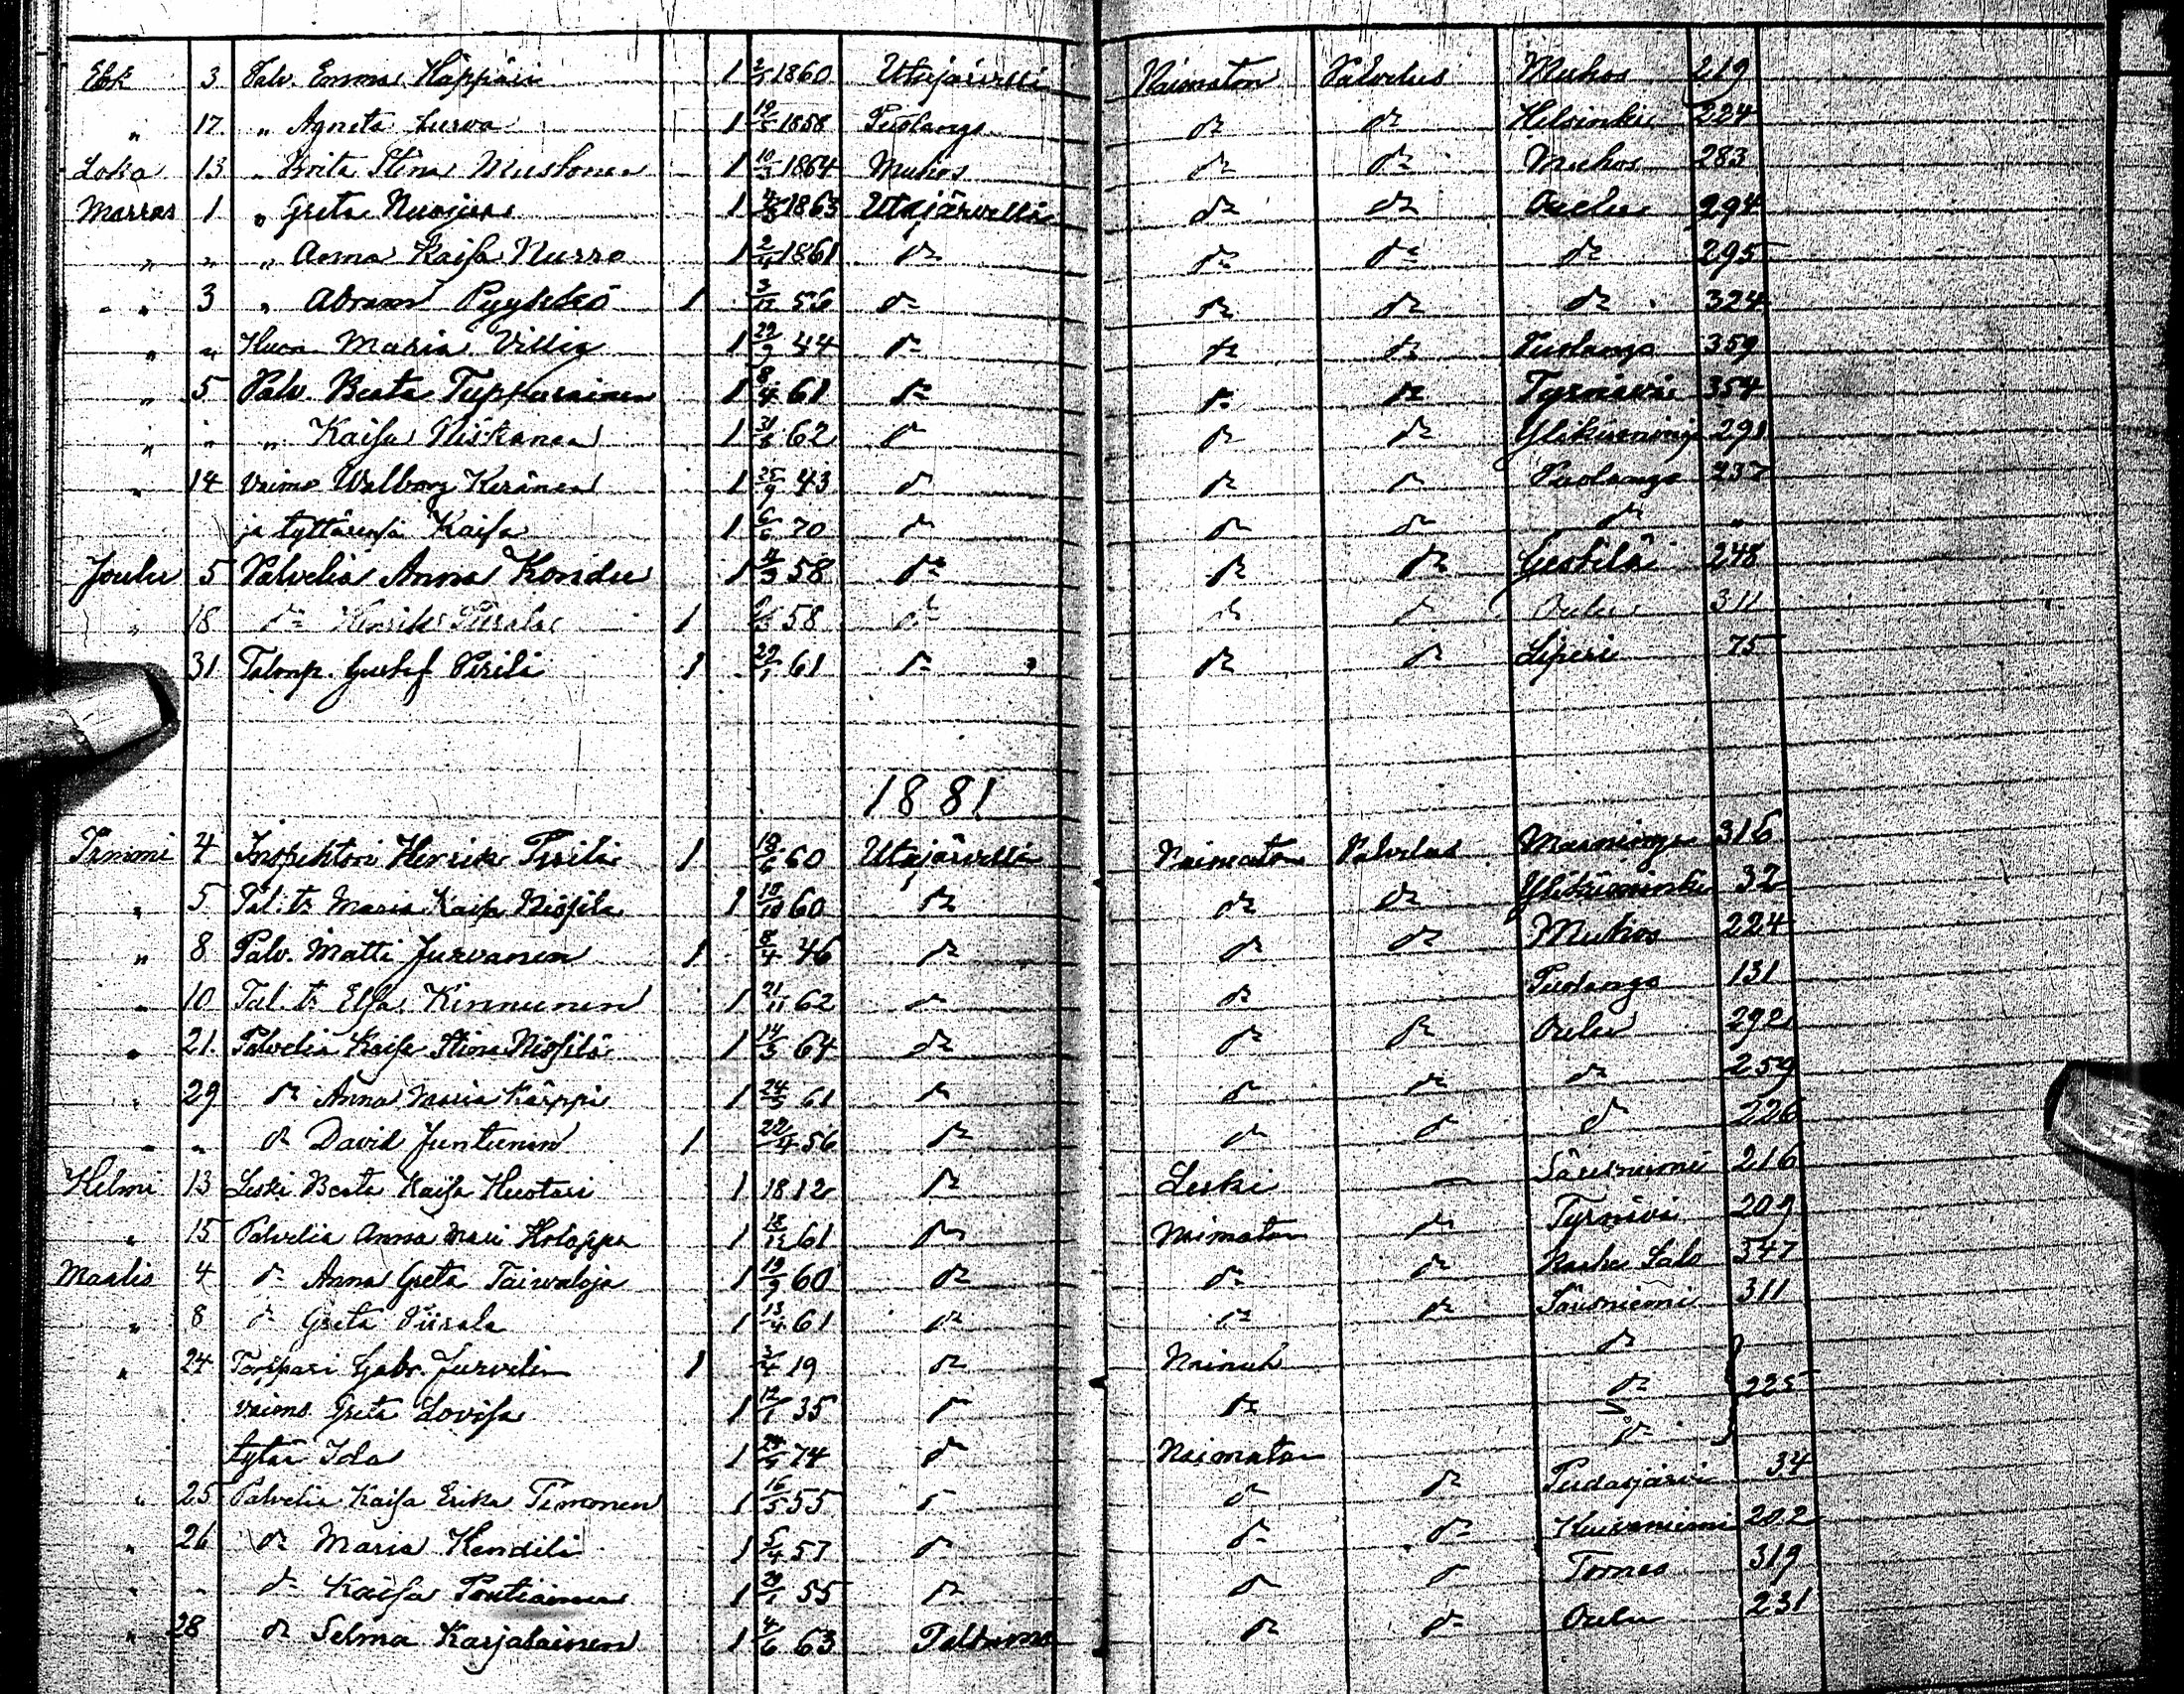 Elok 3 Palv. Emma Käppäri 1 1860 Utajärvellä Naimaton Palvelus Muhos 219
" 17 " Agneta Lurva 1 19/5 1858 Puolango d:o d:o Helsinki 224
Loka 13 " Brita Stina Mustonen 1 10/3 1864 Muhos d:o d:o Muhos 283
Marras 1 " Greta Nuojua 1 1863 Utajärvellä d:o d:o Oulu 294
" " " Anna Kaisa Nurro 1 2/4 1861 d:o d:o d:o d:o 295
" 3 " Abram Pyykkö 1 3/12 56 d:o d:o d:o d:o 324
" " Maria Villig 1 44 d:o d:o d:o Puolango 359
" 5 Palv. Beata Tuppurainen 1 8/4 61 d:o d:o d:o Tyrnävä 354
" " " Kaisa Niskanen 1 62 d:o d:o d:o Ylikiiminki 291
" 14 Vaimo Walborg Keränen 1 25/9 43 d:o d:o d:o Puolango 237
ja tyttärensä Kaisa 1 6/6 70 d:o d:o d:o d:o "
Joulu 5 Palvelia Anna Kondu 1 4/3 58 d:o d:o d:o Gestilä 248
" 18 d:o Henrik Piirala 1 58 d:o d:o d:o Oulu 311
31 Talonp. Gustaf Pirilä 1 61 d:o d:o d:o Liperi 75
1881
Tammi 4 Inspehtori Henrik Pirilä 1 60 Utajärvellä Naimaton Palvelus 316
" 5 Tal. tr Maria Kaisa Niskilä 1 18/10 60 d:o d:o d:o Ylikiiminki 32
" 8 Palv. Matti Jurvanen 1 8/4 46 d:o d:o d:o Muhos 224
" 10 Tal. tr Elsa Kinnunen 1 21/11 62 d:o d:o Puolango 131
" 21 Palvelia Kaisa Stina Niskilä 1 14/3 64 d:o d:o d:o Oulu 292
" 29 d:o Anna Maria Käppi 1 24/3 61 d:o d:o d:o d:o 259
" " d:o David Juntunen 1 22/4 56 d:o d:o d:o d:o 226
Helmi 13 Leski Beata Kaisa Huotari 1 1812 d:o Leski — Säresniemi 216
" 15 Palvelia Anna Mari Holappa 1 18/12 61 d:o Naimaton d:o Tyrnävä 209
Maalis 4 d:o Anna Greta Taivaloja 1 19/9 60 d:o d:o d:o Salo 347
" 8 d:o Greta Piirala 1 13/4 61 d:o d:o d:o Säresniemi 311
" 24 Torppari Gabr. Jurvelin 1 3/4 19 d:o Nainut d:o
vaimo Greta Lovisa 1 12/1 35 d:o d:o d:o 225
tytär Ida 1 74 d:o Naimaton d:o
" 25 Palvelia Kaisa Erika Timonen 1 16/5 55 d:o d:o d:o Pudasjärvi 34
" 26 d:o Maria Kendili 1 5/4 57 d:o d:o d:o Kuivaniemi 202
" " d:o Kaisa Pontiainen 1 55 d:o d:o d:o Torneo 319
" 28 d:o Selma Karjalainen 1 4/6 63 Paltamo d:o d:o Oulu 231